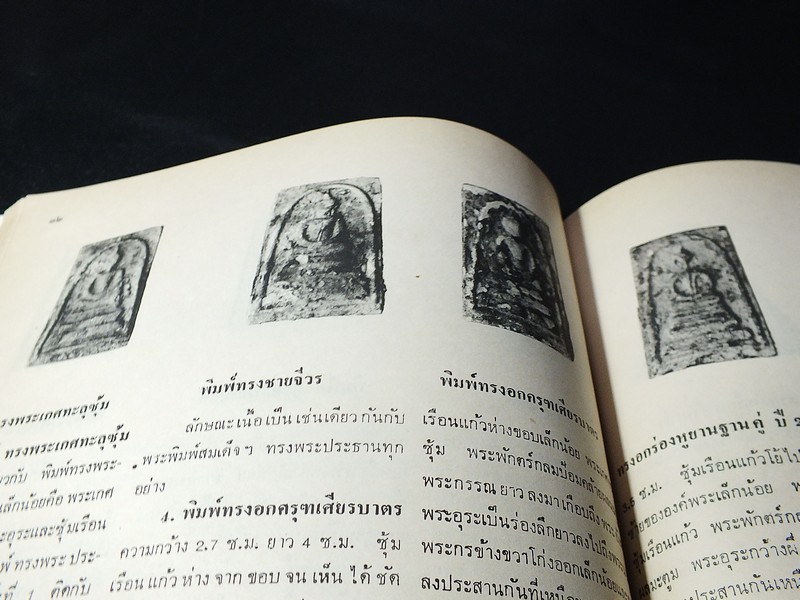 ๓๒
ทรงพระเกศทะลุซุ้ม
ทรงพระเกศทะลุซุ้ม
พิมพ์ทรงพระ-
เล็กน้อยคือ พระเกศ
อุระและซุ้มเรือน
ทรงพระ ประ-
ที่ 1 ติดกับ
พิมพ์ทรงชายจีวร
ลักษณะเนื้อเป็นเช่นเดียวกันกับ
พระพิมพ์สมเด็จฯ ทรงพระประธานทุก
อย่าง
4. พิมพ์ทรงอกครุฑเศียรบาตร
ความกว้าง 2.7 ซ.ม. ยาว 4 ซ.ม. ซุ้ม
เรือนแก้วห่างจากขอบจนเห็นได้ชัด
พิมพ์ทรงอกครุฑเศียรบาตร
เรือนแก้วห่างขอบเล็กน้อย
ซุ้ม พระพักตร์กลมป้อมคล้าย
พระกรรณยาวลงมาเกือบถึง
พระอุระเป็นร่องลึกยาวลงไปถึง
พระกรข้างขวาโก่งออกเล็กน้อย
ลงประสานกันที่เหนือ
ทรงอกร่องหูยานฐานคู่ ปี
3.5 ซ.ม. ซุ้มเรือนแก้วโย้ไป
ซ้ายขององค์พระเล็กน้อย
ซุ้มเรือนแก้ว พระพักตร์
มะตูม พระอุระกว้างผึ่ง
ประสานกัน